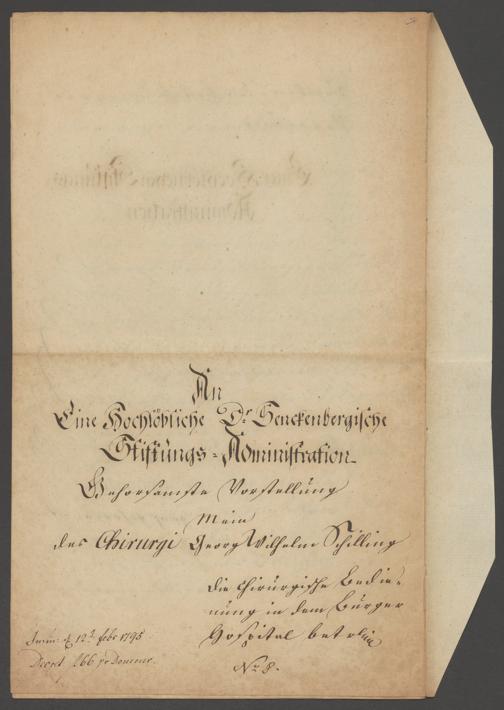 An
Eine Hochlöbliche Dr. Senckenbergische
Stiftungs-Administration
Gehorsamste Vorstellung
Mein
des Chirurgi Georg Wilhelm Schilling
die Chirurgische Bedie-
nung in dem Burger
Hospital betr.
12t. febr 1795
Decret
No. 8.